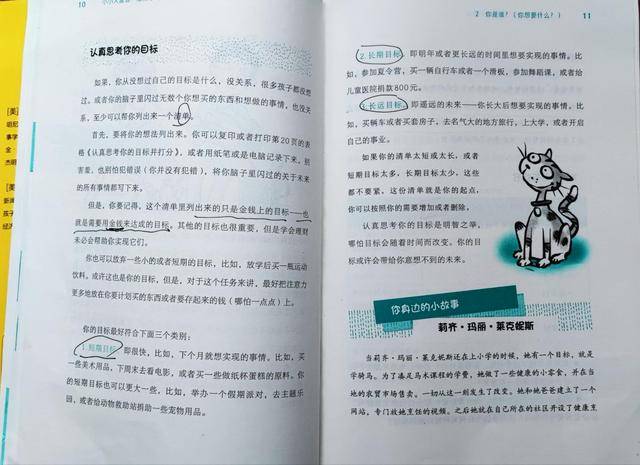 10
认真思考你的目标
如果，你从没想过自己的目标是什么，没关系，很多孩子都没想
过。或者你的脑子里闪过无数个你想买的东西和想做的事情，也没关
系，至少可以帮你列出来一个清单。
首先，要将你的想法列出来。你可以复印或者打印第20页的表
格《认真思考你的目标并打分》，或者用纸笔或是电脑记录下来。别
害羞，也别怕犯错误（你并没有犯错），将你脑子里闪过的关于未来
的所有事情都写下来。
但是，你要记得，这个清单里列出来的只是金钱上的目标——也
就是需要用金钱来达成的目标。其他的目标也很重要，但是学会理财
未必会帮助你实现它们。
你也可以放弃一些小的或者短期的目标，比如，放学后买一瓶运动
饮料。或许这也是你的目标，但是，对于这个任务来讲，最好把注意力
更多地放在你要计划买的东西或者要存起来的钱（哪怕一点点）上。
你的目标最好符合下面三个类别：
1.短期目标，即很快，比如，下个月就想实现的事情。比如，买
一些美术用品，下周末去看电影，或者买一些做纸杯蛋糕的原料。你
的短期目标也可以更大一些，比如，举办一个假期派对，去主题乐
园，或者给动物救助站捐助一些宠物用品。
2 你是谁？（你想要什么？） 11
2.长期目标，即明年或者更长远的时间里想要实现的事情。比
如，参加夏令营，买一辆自行车或者一个滑板，参加舞蹈课，或者给
儿童医院捐款800元。
3.长远目标，即遥远的未来——你长大后想要实现的事情。比
如，买辆车或者买套房子，去名气大的地方旅行，上大学，或者开启
自己的事业。
如果你的清单太短或太长，或者
短期目标太多，长期目标太少，这些
都不要紧。这份清单就是你的起点，
你可以按照你的需要增加或者删除。
认真思考你的目标是明智之举，
哪怕目标会随着时间而改变。你的目
标或许会带给你意想不到的未来。
你身边的小故事
莉齐·玛丽·莱克妮斯
当莉齐·玛丽·莱克妮斯还在上小学的时候，她有一个目标，就是
学骑马。为了凑足马术课程的学费，她做了一些健康的小零食，并在当
地的农贸市场售卖。一切从这一刻发生了改变。她和她爸爸建立了一个
网站，专门放她烹饪的视频。之后她就在自己所在的社区开设了健康烹